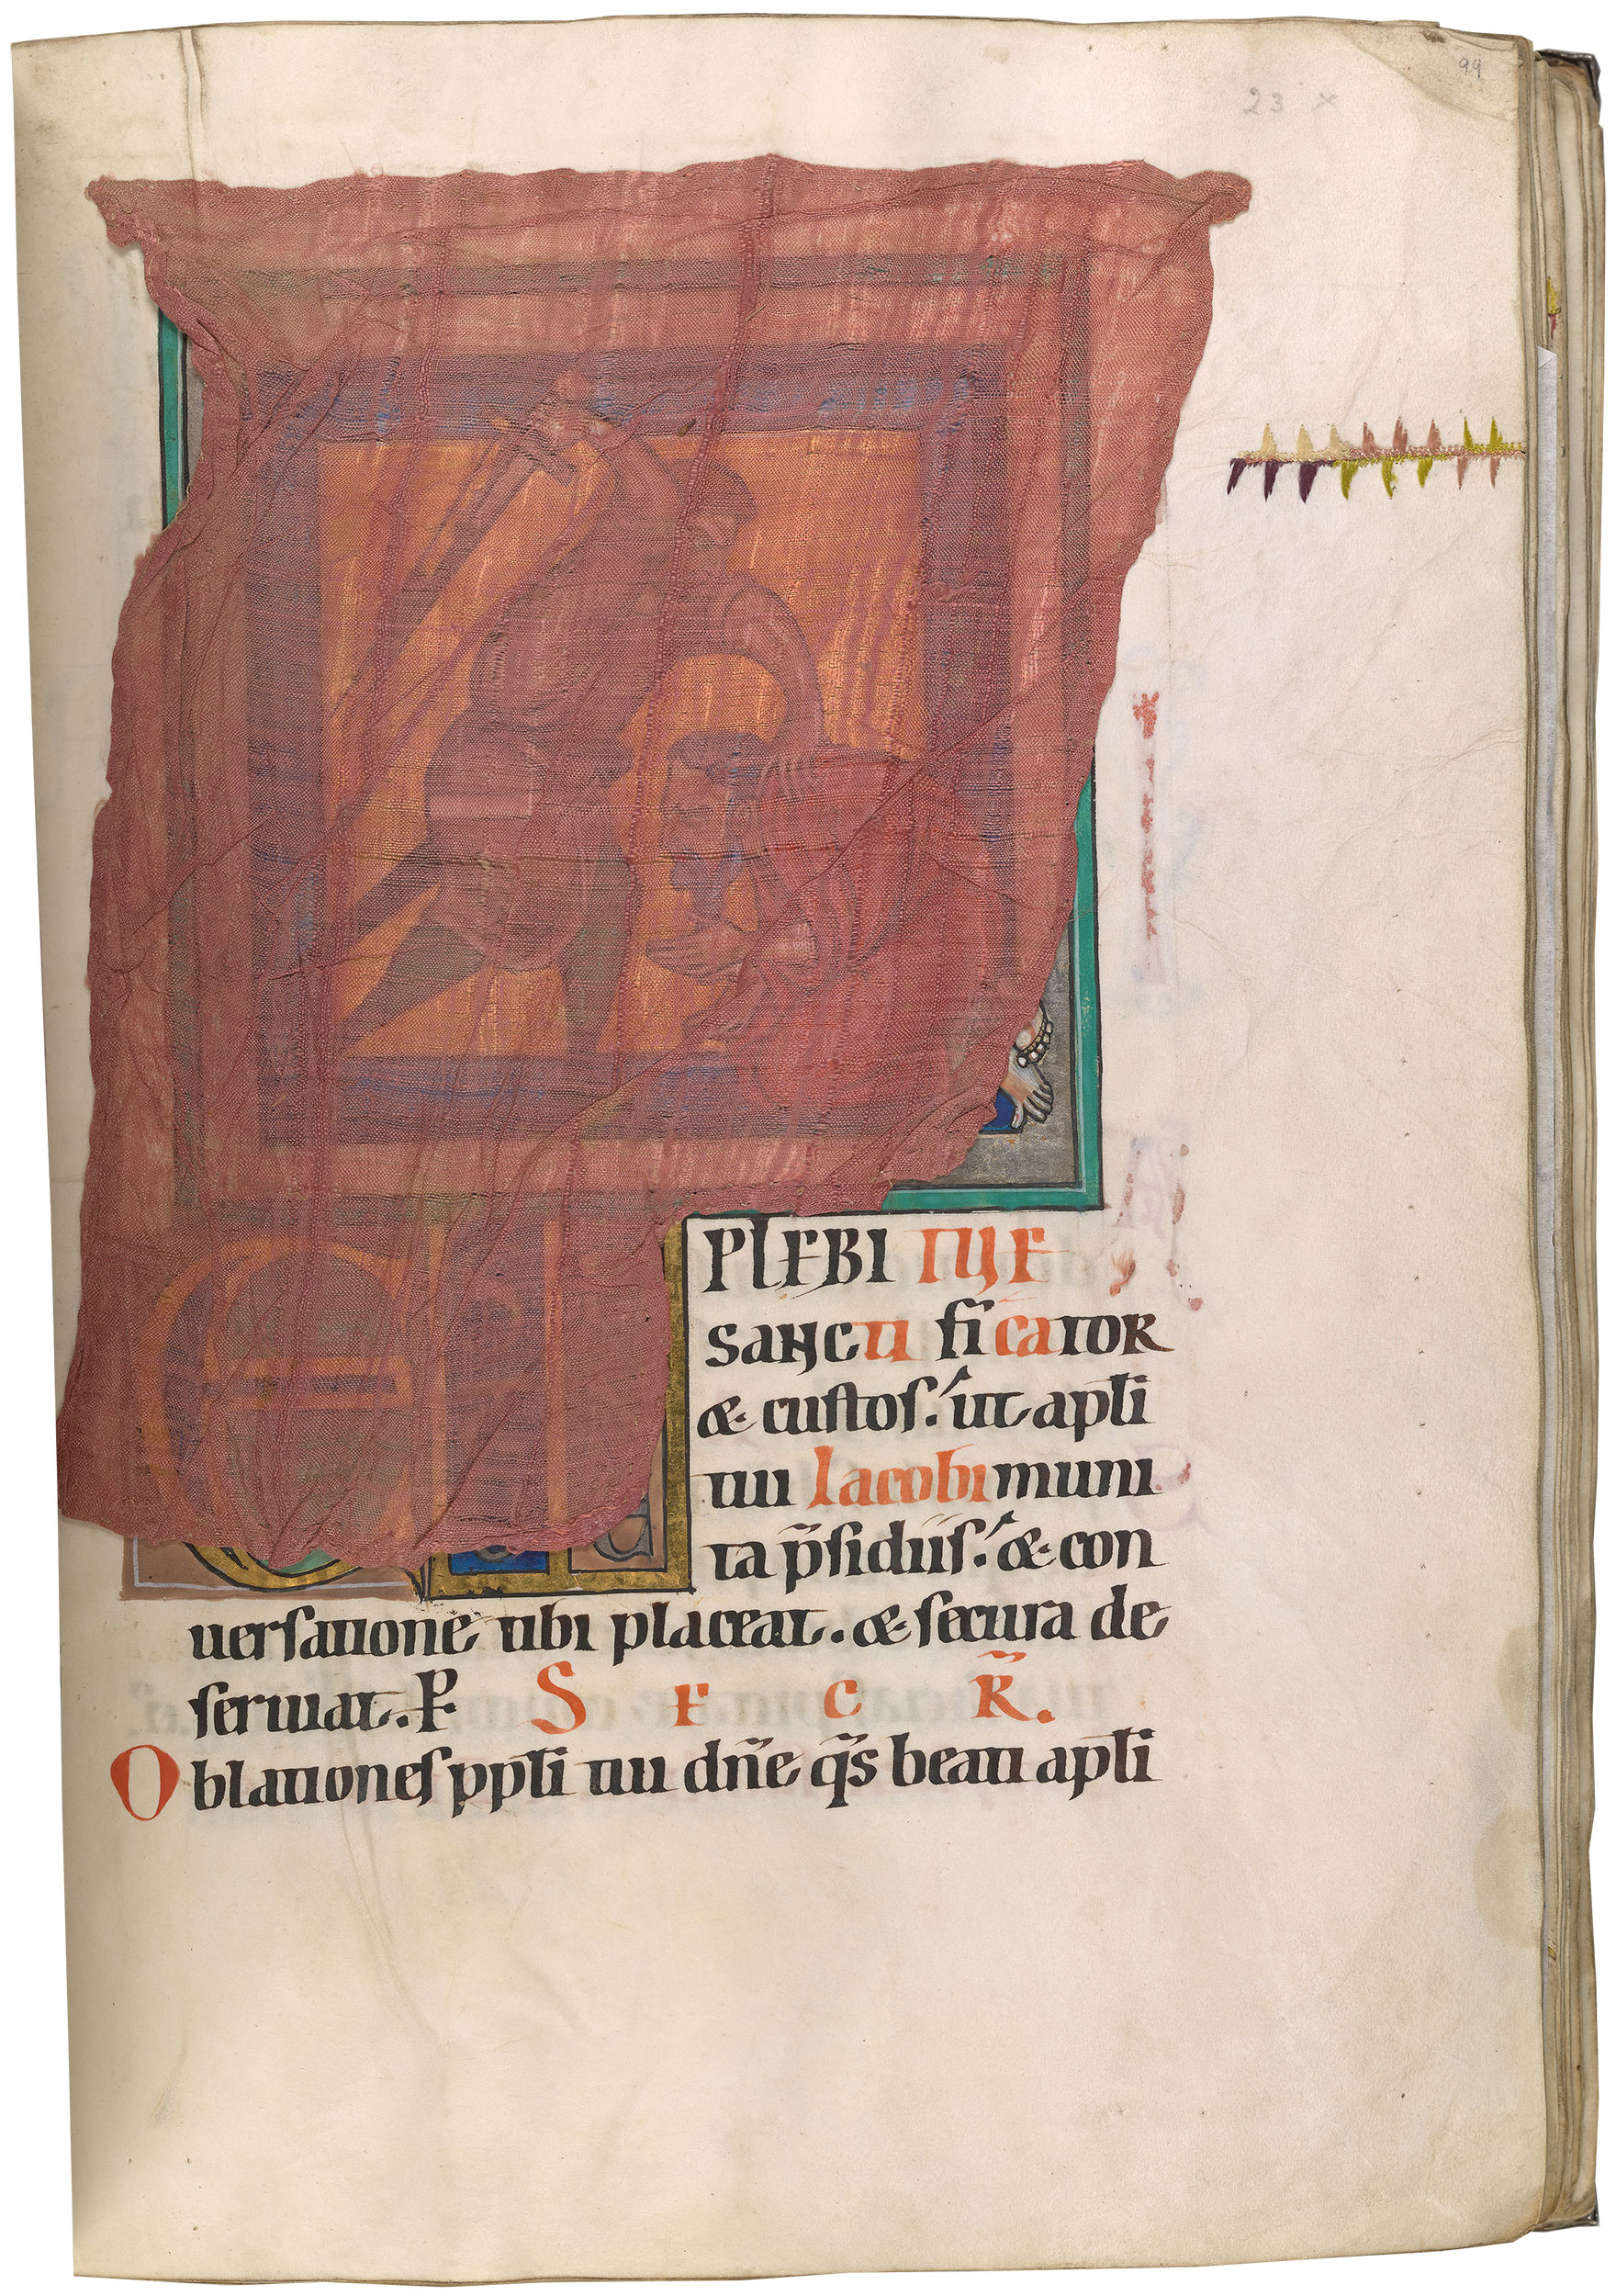 99
23 x
PLEBI TUE
SANCTI FICATOR
& custos. ut apľi
tui Iacobi muni
ta p̃sidiis. & con
uersatione tibi placeat. & secura de
seruiat. P. S F C R̃.
Oblationes ppľi tui dñe q̃s beati apľi